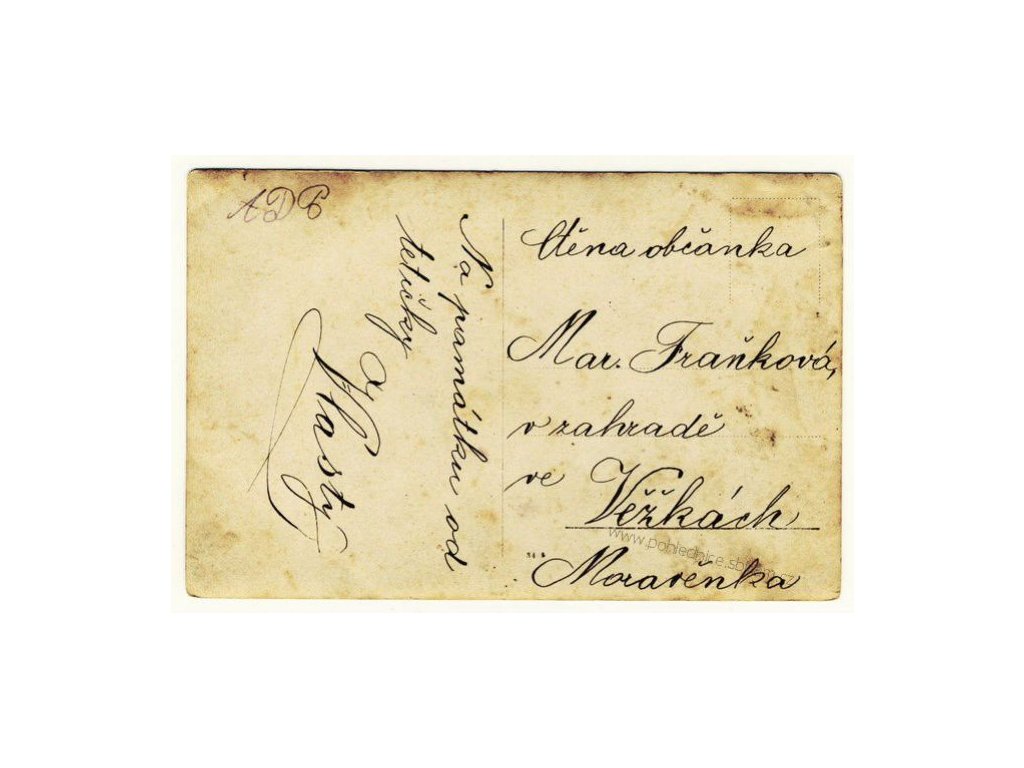 ADP
Na památku od
tetičky
z Vlasty
Ctěna občanka
Mar. Fraňková,
v zahradě
ve Věžkách,
Moravěnka
www.pohlednice.sbiram.cz